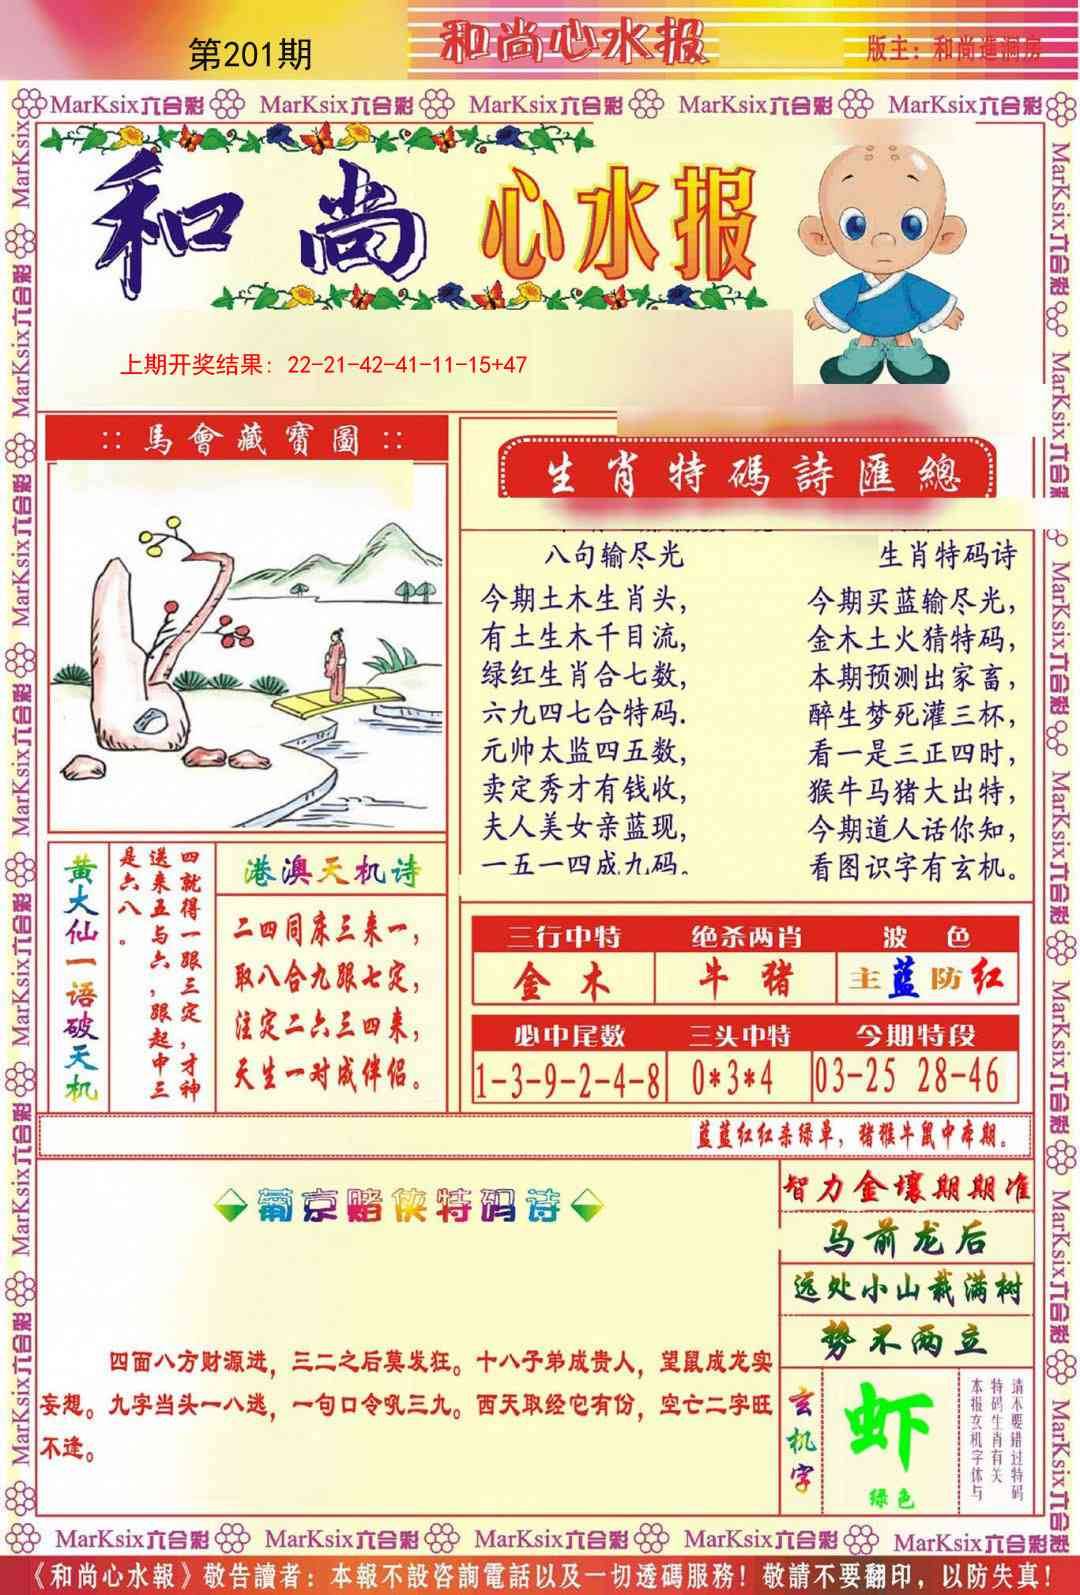 第201期
和尚心水报
版主：和尚造洞房
MarKsix六合彩 MarKsix六合彩 MarKsix六合彩 MarKsix六合彩 MarKsix六合彩
和尚 心水报
上期开奖结果：22-21-42-41-11-15+47
::馬會藏寶圖::
生肖特碼詩匯總
八句输尽光
今期土木生肖头，
有土生木千目流，
绿红生肖合七数，
六九四七合特码.
元帅太监四五数，
卖定秀才有钱收，
夫人美女亲蓝现，
一五一四成九码。
生肖特码诗
今期买蓝输尽光，
金木土火猜特码，
本期预测出家畜，
醉生梦死灌三杯，
看一是三正四时，
猴牛马猪大出特，
今期道人话你知，
看图识字有玄机。
黄大仙一语破天机
四就得一跟三定，才神
送来五与六，跟起中三
是六八。
港澳天机诗
二四同床三来一，
取八合九跟七定，
注定二六三四来，
天生一对成伴侣。
三行中特 绝杀两肖 波色
金木 牛猪 主蓝防红
必中尾数 三头中特 今期特段
1-3-9-2-4-8 0*3*4 03-25 28-46
蓝蓝红红杀绿单，猪猴牛鼠中本期。
葡京赌侠特码诗
四面八方财源进，三二之后莫发狂。十八子弟成贵人，望鼠成龙实
妄想。九字当头一八逃，一句口令吼三九。西天取经它有份，空亡二字旺
不逢。
智力金壤期期准
马前龙后
远处小山栽满树
势不两立
玄机字
虾
绿色
请不要错过特码
特码生肖有关
本报玄机字体与
MarKsix六合彩 MarKsix六合彩 MarKsix六合彩 MarKsix六合彩 MarKsix六合彩
《和尚心水報》敬告讀者：本報不設咨詢電話以及一切透碼服務！敬請不要翻印，以防失真！